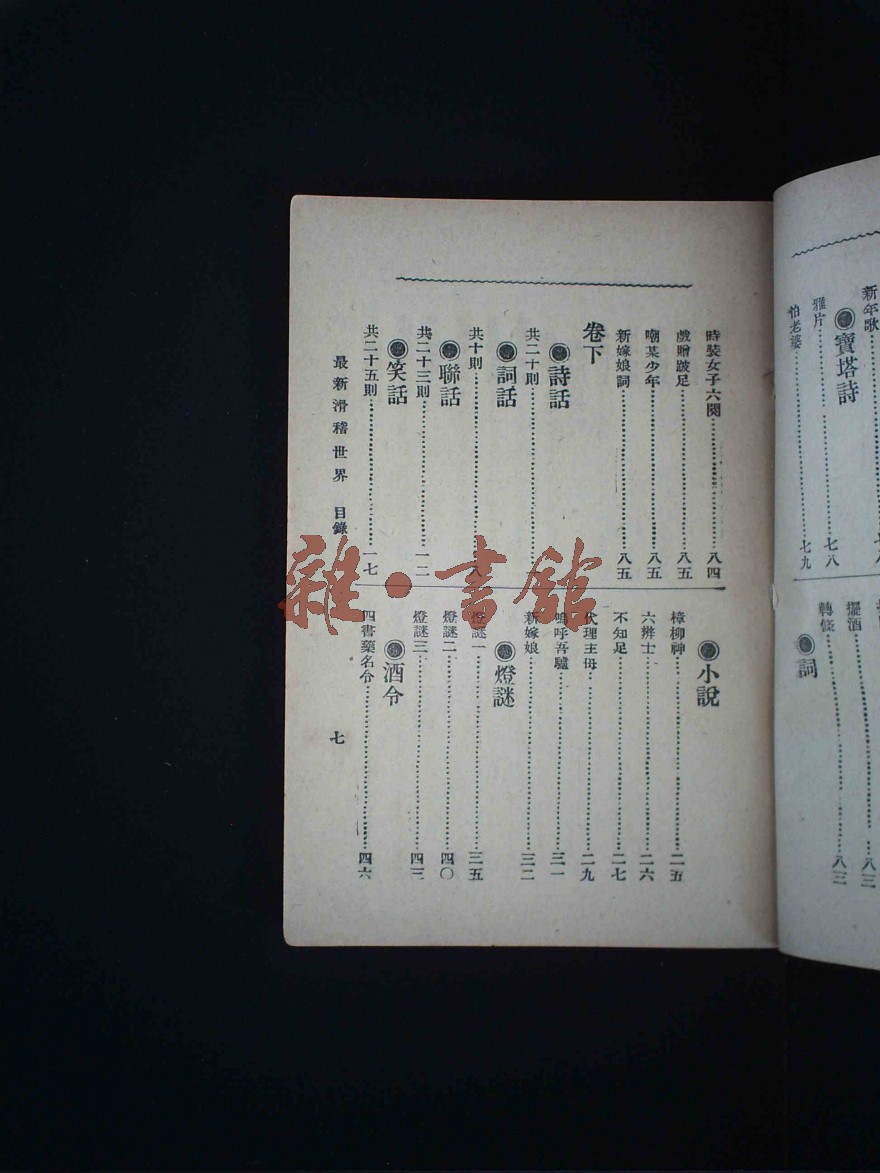 新年歌
寶塔詩
雅片……七八
怕老婆……七九
擺酒……八三
轉條……八三
詞
時裝女子六闋……八四
戲贈跛足……八五
嘲某少年……八五
新嫁娘詞……八五
卷下
詩話
共二十則
詞話
共十則……八
聯話
共二十三則……一二
笑話
共二十五則……一七
小說
樟柳神……二五
六辨士……二六
不知足……二七
代理主母……二九
嗚呼吾驢……三一
新嫁娘……三二
燈謎
燈謎一……三五
燈謎二……四〇
燈謎三……四三
酒令
四書藥名令……四六
最新滑稽世界 目錄
七
雜·書館